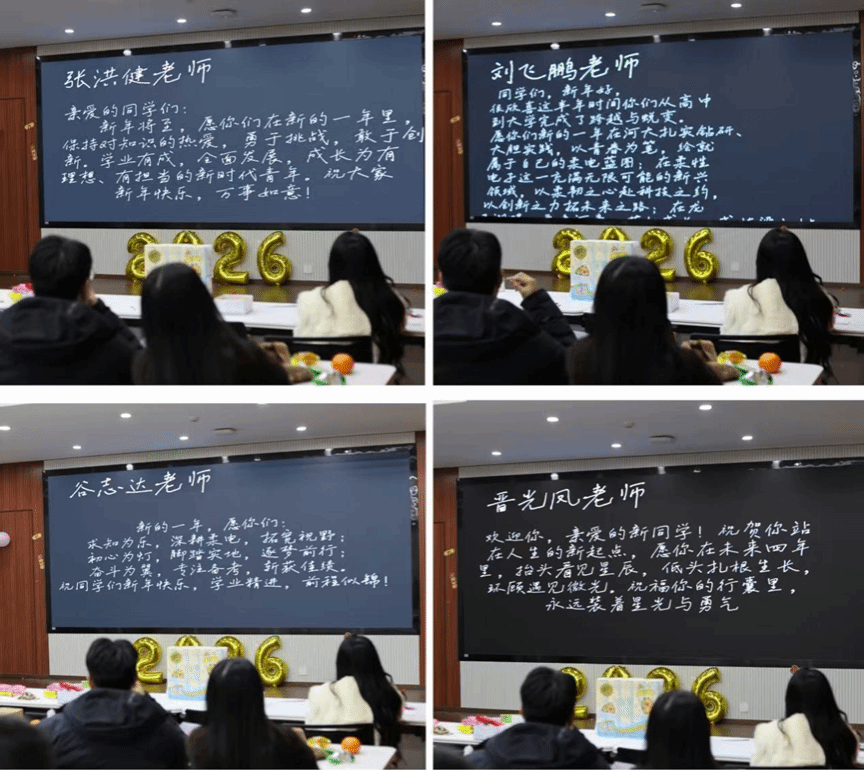 张洪健老师
亲爱的同学们：
新年将至，愿你们在新的一年里，
保持对知识的热爱，勇于挑战，敢于创
新。学业有成，全面发展，成长为有
理想、有担当的新时代青年。祝大家
新年快乐，万事如意！
2026
刘飞鹏老师
同学们，新年好，
很欣喜这半年时间你们从高中
到大学完成了跨越与蜕变。
愿你们新的一年在河大扎实钻研、
大胆实践，以青春为笔，绘就
属于自己的柔电蓝图；在柔性
电子这一充满无限可能的新兴
领域，以柔韧之心赴科技之约，
以创新之力拓未来之路；在龙
2026
谷志达老师
新的一年，愿你们：
求知为乐，深耕柔电，拓宽视野；
初心为灯，脚踏实地，逐梦前行；
奋斗为翼，专注备考，斩获佳绩。
祝同学们新年快乐，学业精进，前程似锦！
2026
晋光凤老师
欢迎你，亲爱的新同学！祝贺你站
在人生的新起点，愿你在未来四年
里，抬头看见星辰，低头扎根生长，
环顾遇见微光。祝福你的行囊里，
永远装着星光与勇气
2026